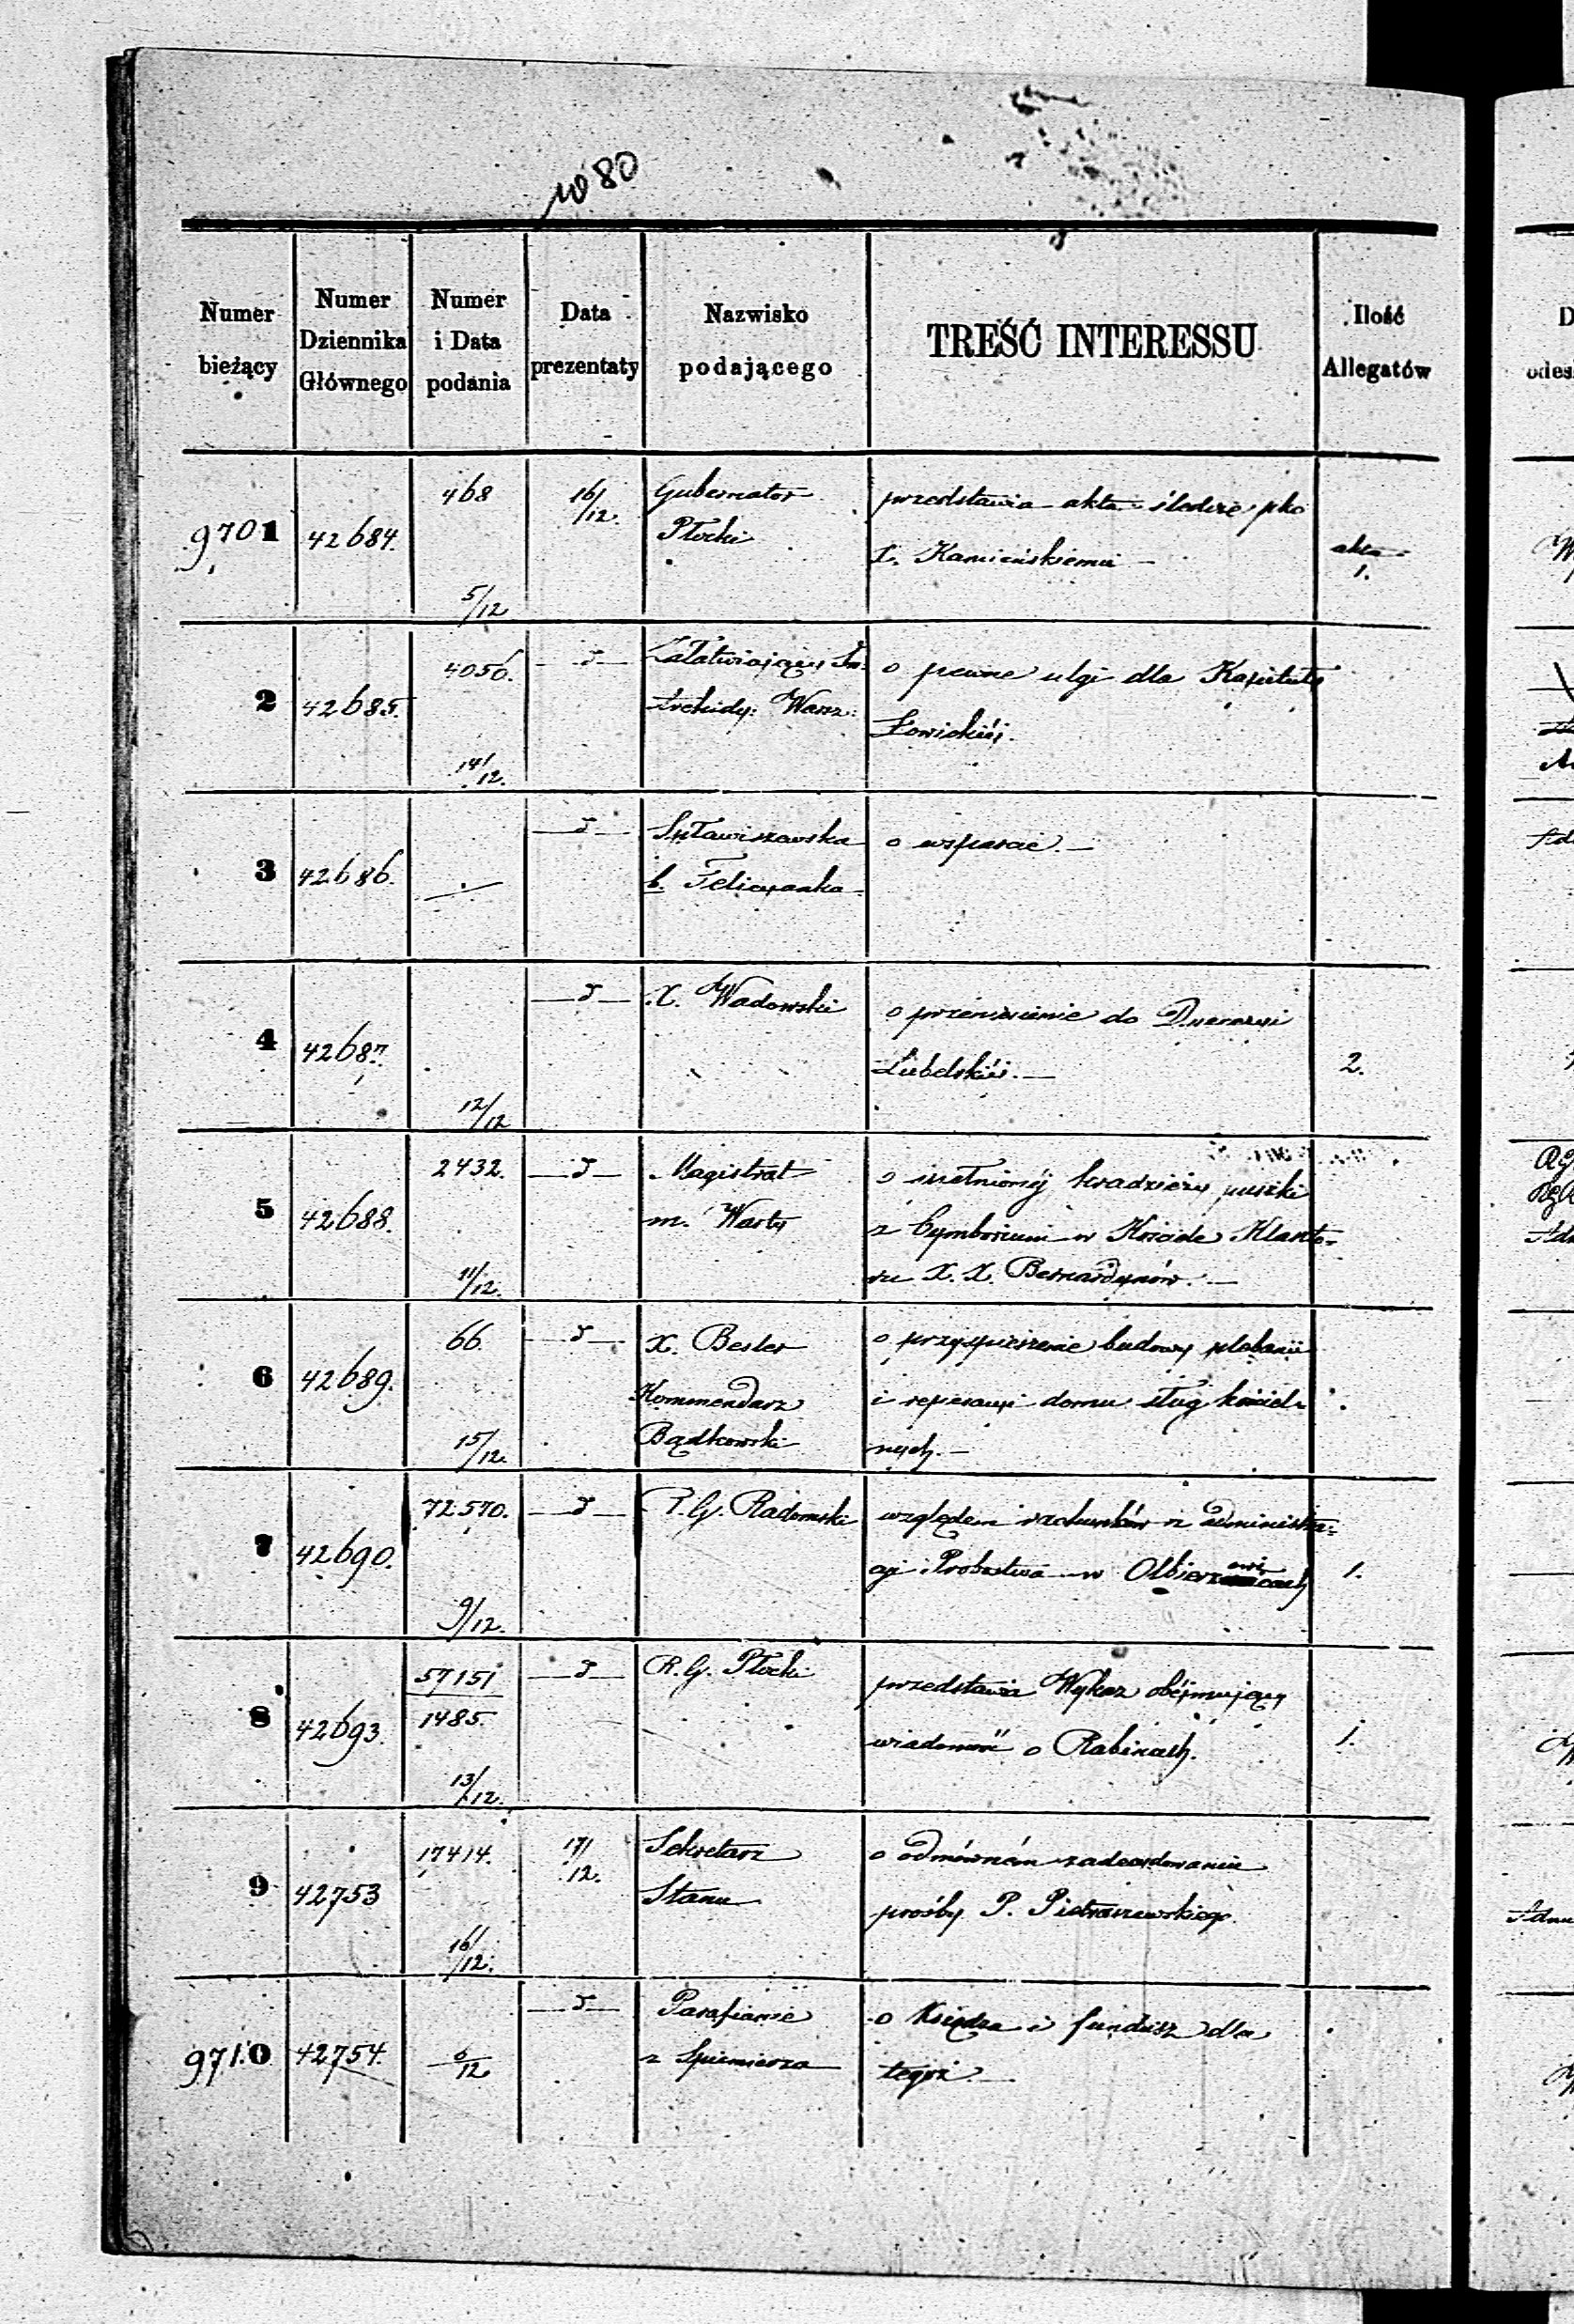 1080
Numer bieżący
Numer Dziennika Głównego
Numer i Data podania
Data prezentaty
Nazwisko podającego
TREŚĆ INTERESSU
Ilość Allegatów
9701 42684. 468 5/12 16/12. Gubernator Płocki
przedstawia akta śledcze pko
X. Kamieńskiemu —
akta 1.
2 42685. 4056. 14/12. —d— Załatwiający In. Archidy: Warsz:
o pewne ulgi dla Kapituły
Łowickiéj.
3 42686. —d— b. Felicyanka
o wsparcie. —
4 42687. 12/12 —d— X. Wadowski
o przeniesienie do Dyecezyi
Lubelskiéj. —
2.
5 42688. 2432. 11/12. —d— Magistrat m. Warty
o kradzieży puszki
z Cymborium w Kościele Klaszto-
ru X. X. Bernardynów. —
6 42689. 66. 15/12. —d— X. Besler Kommendarz Bądkowski
o przyspieszenie budowy plebanii
i reperacyi domu sług kościel-
nych. —
7 42690. 72570. 9/12. —d— R. G. Radomski
względem rachunków z administra-
cyi Probostwa w Olbierzowicach
1.
8 42693. 57151 1485. 13/12. —d— R. G. Płocki
przedstawia Wykaz obéjmujący
wiadomość o Rabinach.
1.
9 42753 17414. 16/12. 17/12. Sekretarz Stanu
o odmówném zadecydowaniu
prośby P. Pietraszewskiego.
9710 42754. 6/12 —d— Parafianie z
o Księdza i fundusz dla
tegoż. —